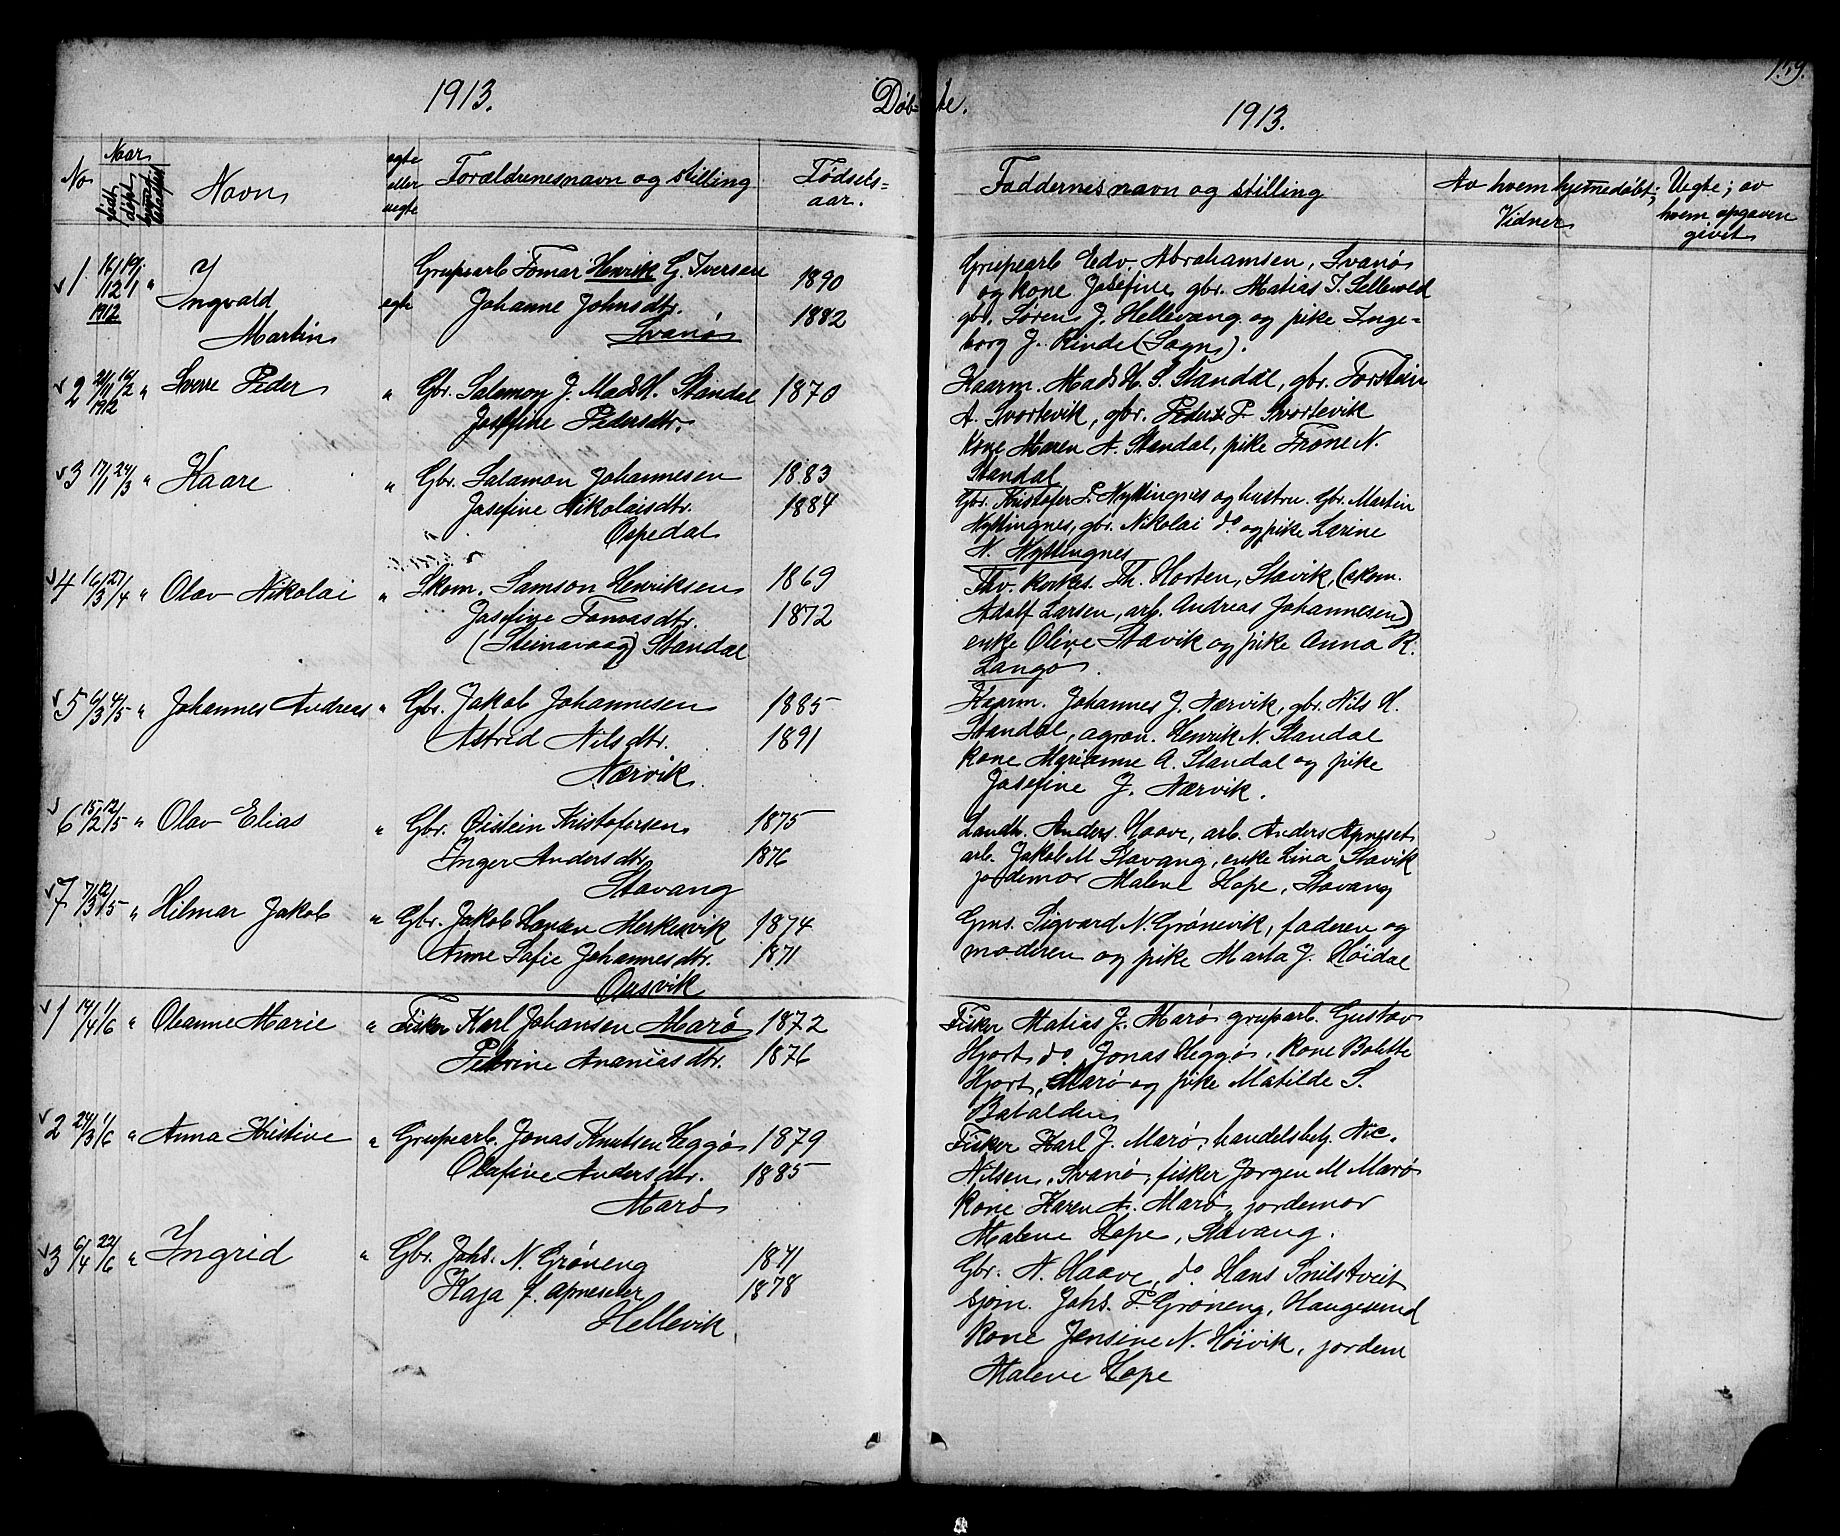 159.
1913.
Døb-te.
1913.
No
Naar
født
døbt
Navn
ægte eller uegte
Forældrenes navn og stilling
Fødsels=aar.
Faddernes navn og stilling
Av hvem hjemmedøbt; Vidner
Uegte; av hvem opgaven givet
1. 16/12 1912 19/1 "
Ingvald
Martin
egte
Grupearb Tomar Henrik G. Iversen 1890
Johanne Johnsdtr. 1882
Svanø
Grupearb Edv. Abrahamsen, Svanø
og kone Josefine gbr. Matias J. Sellevold
gbr. Søren J. Hellevang og pike Inge=
borg J. Rinde (Sogn).
2 21/11 1912 16/2 " Sverre Peder " Gbr. Salamon J. Mads H. Standal 1870
Josefine Pedersdtr.
Kaarm. Mads H. S. Standal, gbr. Torstein
A. Svortevik, gbr. Peder P. Svortevik
Kone Maren A. Standal, pike Trone N.
Standal
3 17/1 24/3 " Kaare " Gbr. Salamon Johannesen 1883
Josefine Nikolaisdtr. 1884
Ospedal
Gbr. Kristofer P. Nyttingnes og hustru. Gbr. Martin
Nyttingnes, gbr. Nikolai do og pike Larine
N. Nyttingnes
4 16/3 27/4 " Olav Nikolai " Skom. Samson Henriksen 1869
Josefine Tomasdtr. 1872
(Steinavaag) Standal
Fhv. kirkes. Th. Horten, Stavik (skom.
Adolf Larsen, arb. Andreas Johannesen)
enke Olive Stavik og pike Anna R.
Langø
5 6/3 4/5 " Johannes Andreas " Gbr. Jakob Johannesen 1885
Astrid Nilsdtr. 1891
Nærvik
Kaarm. Johannes J. Nærvik, gbr. Nils H.
Standal, agron. Henrik N. Standal
kone Marianne A. Standal og pike
Josefine J. Nærvik.
6 15/2 12/5 " Olav Elias " Gbr. Øistein Kristofersen 1875
Inger Andersdtr 1876
Stavang
Landh. Anders Haave, arb. Anders Apneset
arb. Jakob M Stavang, enke Lina Stavik
jordemor Malene Hope, Stavang
7 7/3 12/5 " Hilmar Jakob " Gbr. Jakob Hansen Merkesvik 1874
Anne Sofie Johannesdtr. 1871
Ousvik
Gms. Sigvard N. Grønevik, faderen og
moderen og pike Marta J. Høidal
1 14/4 1/6 " Oleanne Marie " Fisker Karl Johansen Marø 1872
Petrine Ananiasdtr. 1876
Fisker Matias J. Marø gruparb. Gustav
Hjort do Jonas Heggø, kone Bolette
Hjort, Marø og pike Matilde S.
Batalden
2 24/3 1/6 " Anna Kristine " Grupearb. Jonas Knutsen Heggø 1879
Olafine Andersdtr. 1885
Marø
Fisker Karl J. Marø, handelsbetj. Nic.
Nilsen, Svanø, fisker Jørgen M Marø
kone Karen A. Marø, jordemor
Malene Hope, Stavang.
3 6/4 22/6 " Ingrid " Gbr. Johs. N. Grøneng 1871
Kaja J. Apneseter 1878
Hellevik
Gbr. N. Haave, do Hans Snilstveit
sjøm. Johs. P. Grøneng, Haugesund
kone Jensine N. Høivik, jordem
Malene Hope